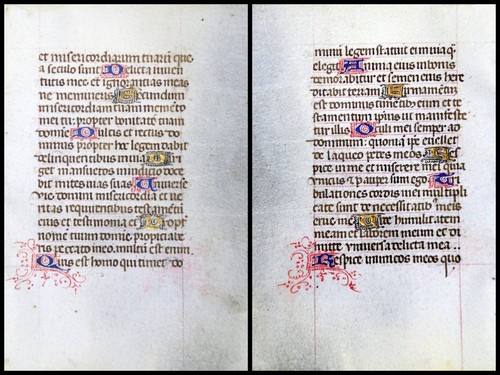 et misericordiarum tuarū que
a seculo sunt Delicta iuuen
tutis mee et ignorantias meas
ne memineris Secundum
misericordiam tuam memēto
mei tu: propter bonitatē tuam
domine Dulcis et rectus do
minus propter hoc legem dabit
delinquentibus in uia Diri
get mansuetos in iudicio doce
bit mites uias suas Uniuerse
uie domini misericordia et ue
ritas requirentibus testamētū
eius et testimonia eius Propt̄
nomen tuum domine propiciabe
ris peccato meo. multū est enim
Quis est homo qui timet do
minū legem statuit ei in uia quā
elegit Anima eius in bonis
demorabitur et semen eius here
ditabit terram Firmamentū
est dominus timētibus eum et te
stamentum ipīus ut manifeste
tur illis Oculi mei semper ad
dominum: quoniā ipē euellet
de laqueo pedes meos Respi
ce in me et miserere mei quia
unicus et pauper sum ego Tri
bulationes cordis mei multipli
cate sunt de necessitatibꝫ meis
erue me Uide humilitatem
meam et laborem meum et di
mitte uniuersa delicta mea..
Respice inimicos meos quo